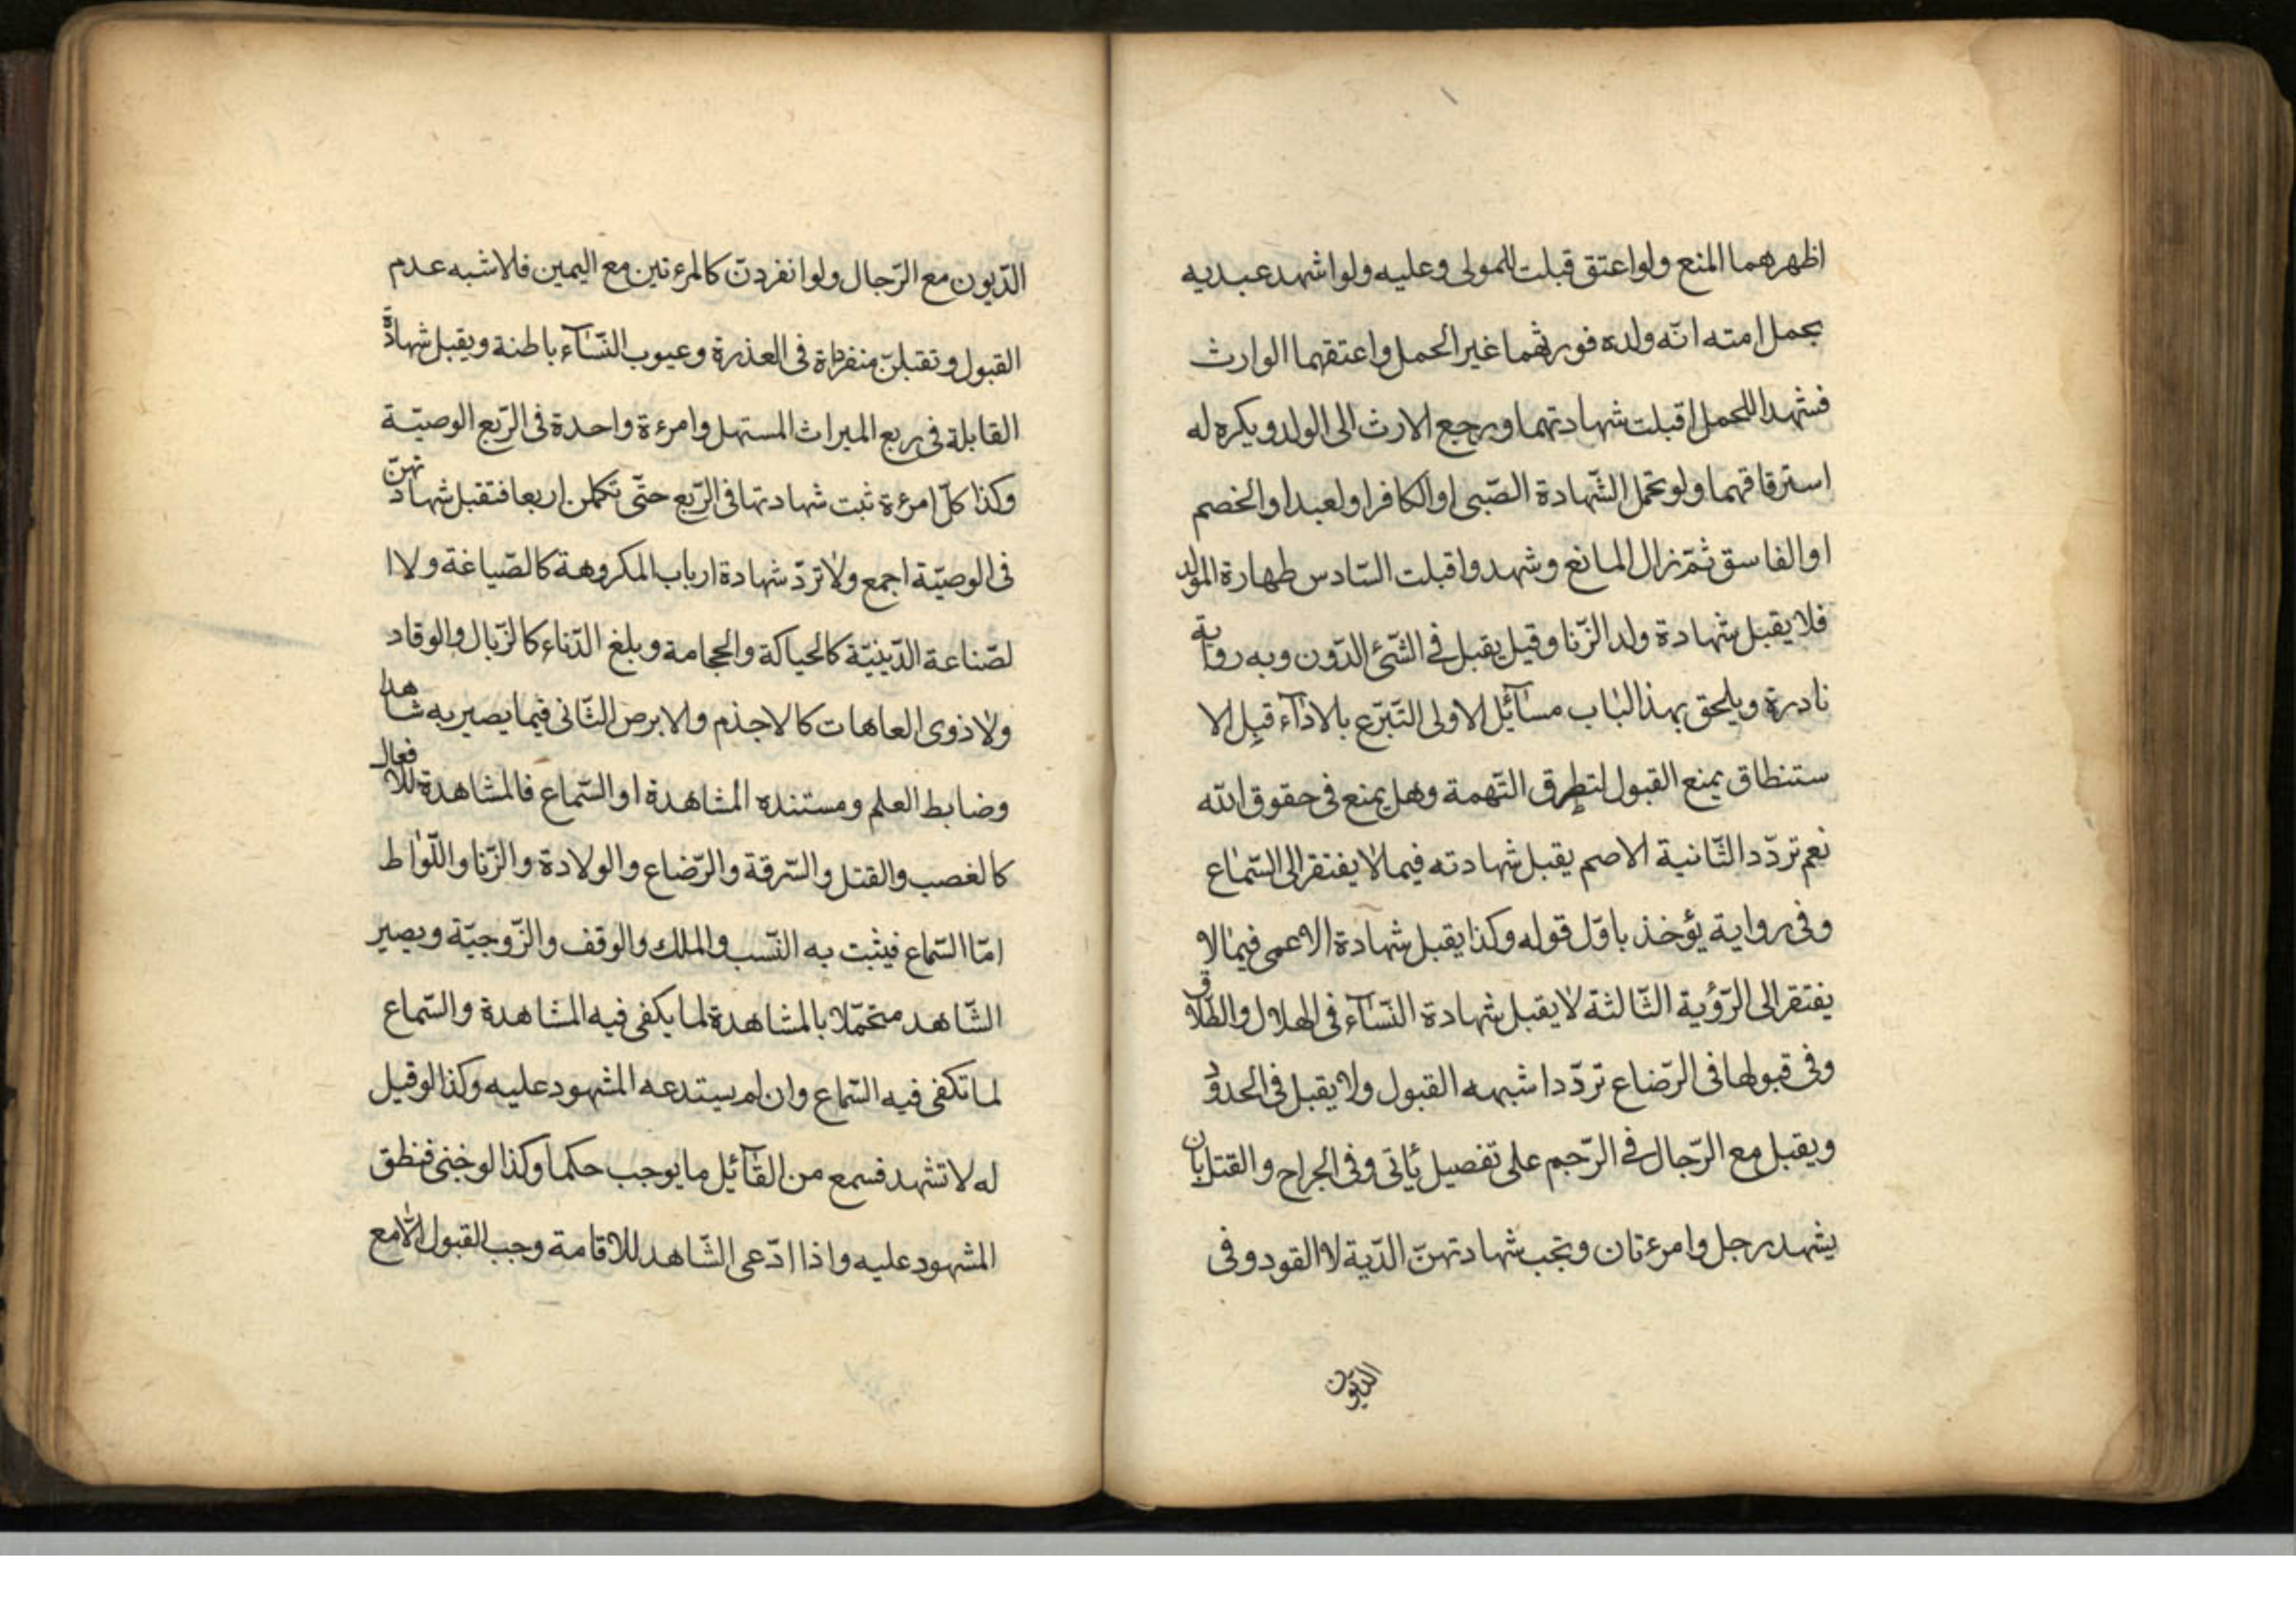 اظهرهما المنع ولو اعتق قبلت للمولى وعليه ولو اشهد عبديه
بحمل امته انّه ولده فورثهما غير الحمل واعتقهما الوارث
فشهدا للحمل قبلت شهادتهما ويرجع الارث الى الولد ويكره له
استرقاقهما ولو تحمل الشّهادة الصّبى او الكافر او لعبد او الخصم
او الفاسق ثمّ زال المانع وشهدوا قبلت السّادس طهارة المولد
فلا يقبل شهادة ولد الزّنا وقيل يقبل فى الشّئ الدّون وبه رواية
نادرة ويلحق بهذا الباب مسآئل الاولى التّبرّع بالادآء قبل الا
ستنطاق يمنع القبول لتطرق التّهمة وهل يمنع فى حقوق الله
نعم تردّد الثّانية الاصم يقبل شهادته فيما لا يفتقر الى السّماع
وفى رواية يؤخذ باوّل قوله وكذا يقبل شهادة الاعمى فيما لا
يفتقر الى الرّؤية الثّالثة لا يقبل شهادة النّسآء فى الهلال والطّلاق
وفى قبولها فى الرّضاع تردّد اشبهه القبول ولا يقبل فى الحدود
ويقبل مع الرّجال فى الرّجم على تفصيل يأتى وفى الجراح والقتل بان
يشهد رجل وامرءتان وتجب شهادتهنّ الدّية لا القود وفى
الديون
الدّيون مع الرّجال ولو انفردت كالمرءتين مع اليمين فلاشبه عدم
القبول وتقبلنّ منفردة فى العذرة وعيوب النّسآء باطنة ويقبل شهادة
القابلة فى ربع الميراث المستهل وامرءة واحدة فى الرّبع الوصيّة
وكذا كلّ امرءة ثبت شهادتها فى الرّبع حتّى تكملن اربعا فتقبل شهادتهنّ
فى الوصيّة اجمع ولا تردّ شهادة ارباب المكروهة كالصّياغة ولا ا
لصّناعة الدّينيّة كالحياكة والحجامة وبلغ الدّناء كالزّبال والوقاد
ولا ذوى العاهات كالاجذم والابرص الثّانى فيما يصير به شاهدا
وضابط العلم ومستنده المشاهدة او السّماع فالمشاهدة للافعال
كالغصب والقتل والسّرقة والرّضاع والولادة والزّنا واللّواط
امّا السّماع فيثبت به النّسب والملك والوقف والزّوجيّة ويصير
الشّاهد متحمّلا بالمشاهدة لما يكفى فيه المشاهدة والسّماع
لما تكفى فيه السّماع وان لم يستدعه المشهود عليه وكذا لو قيل
له لا تشهد فسمع من القآئل ما يوجب حكما وكذا لو خبى فنطق
المشهود عليه واذا ادّعى الشّاهد للاقامة وجب القبول الّا مع